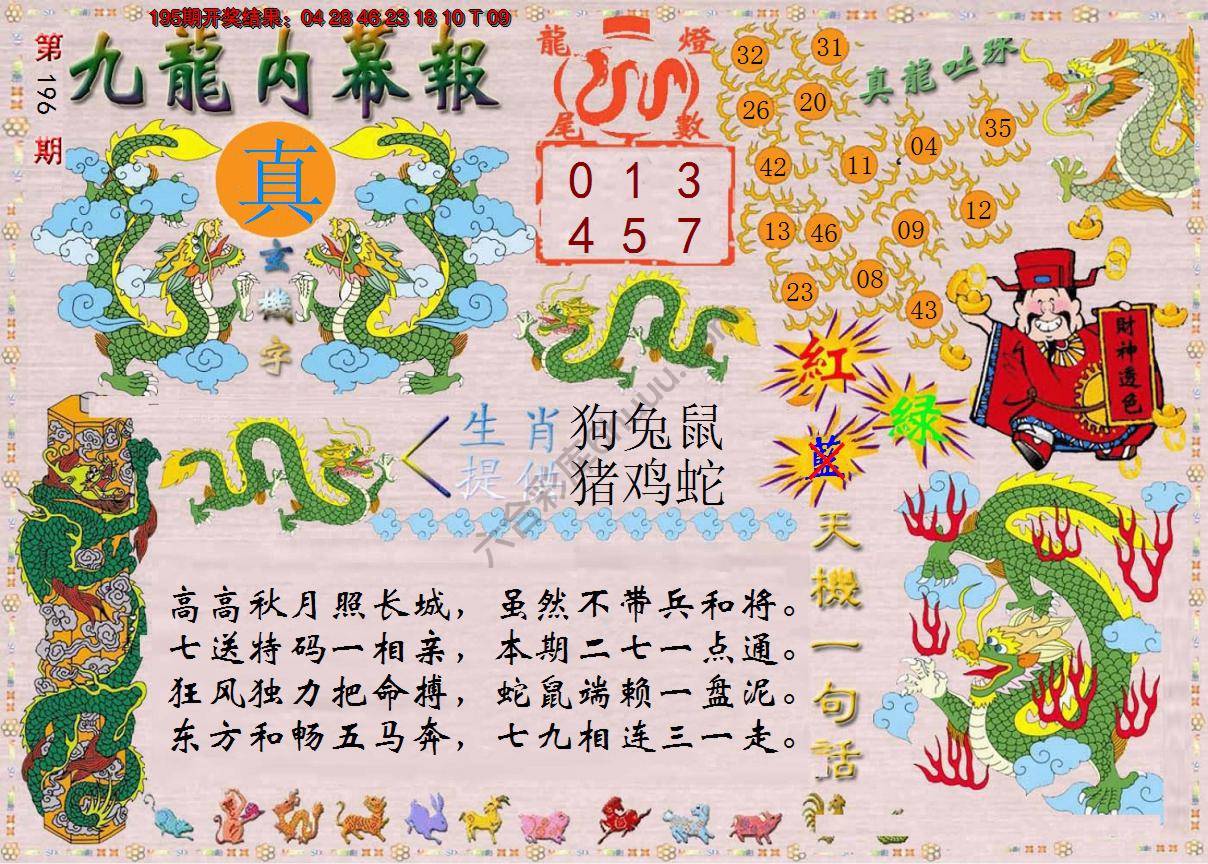 195期开奖结果：04 28 46 23 18 10 T 09
第196期
九龍内幕報
真
玄機字
龍燈
尾數
0 1 3
4 5 7
真龍吐珠
32 31
26 20
42 11 04 35
13 46 09 12
23 08 43
財神透色
紅
綠
藍
生肖 狗兔鼠
提供 猪鸡蛇
高高秋月照长城，虽然不带兵和将。
七送特码一相亲，本期二七一点通。
狂风独力把命搏，蛇鼠端赖一盘泥。
东方和畅五马奔，七九相连三一走。
天機一句話